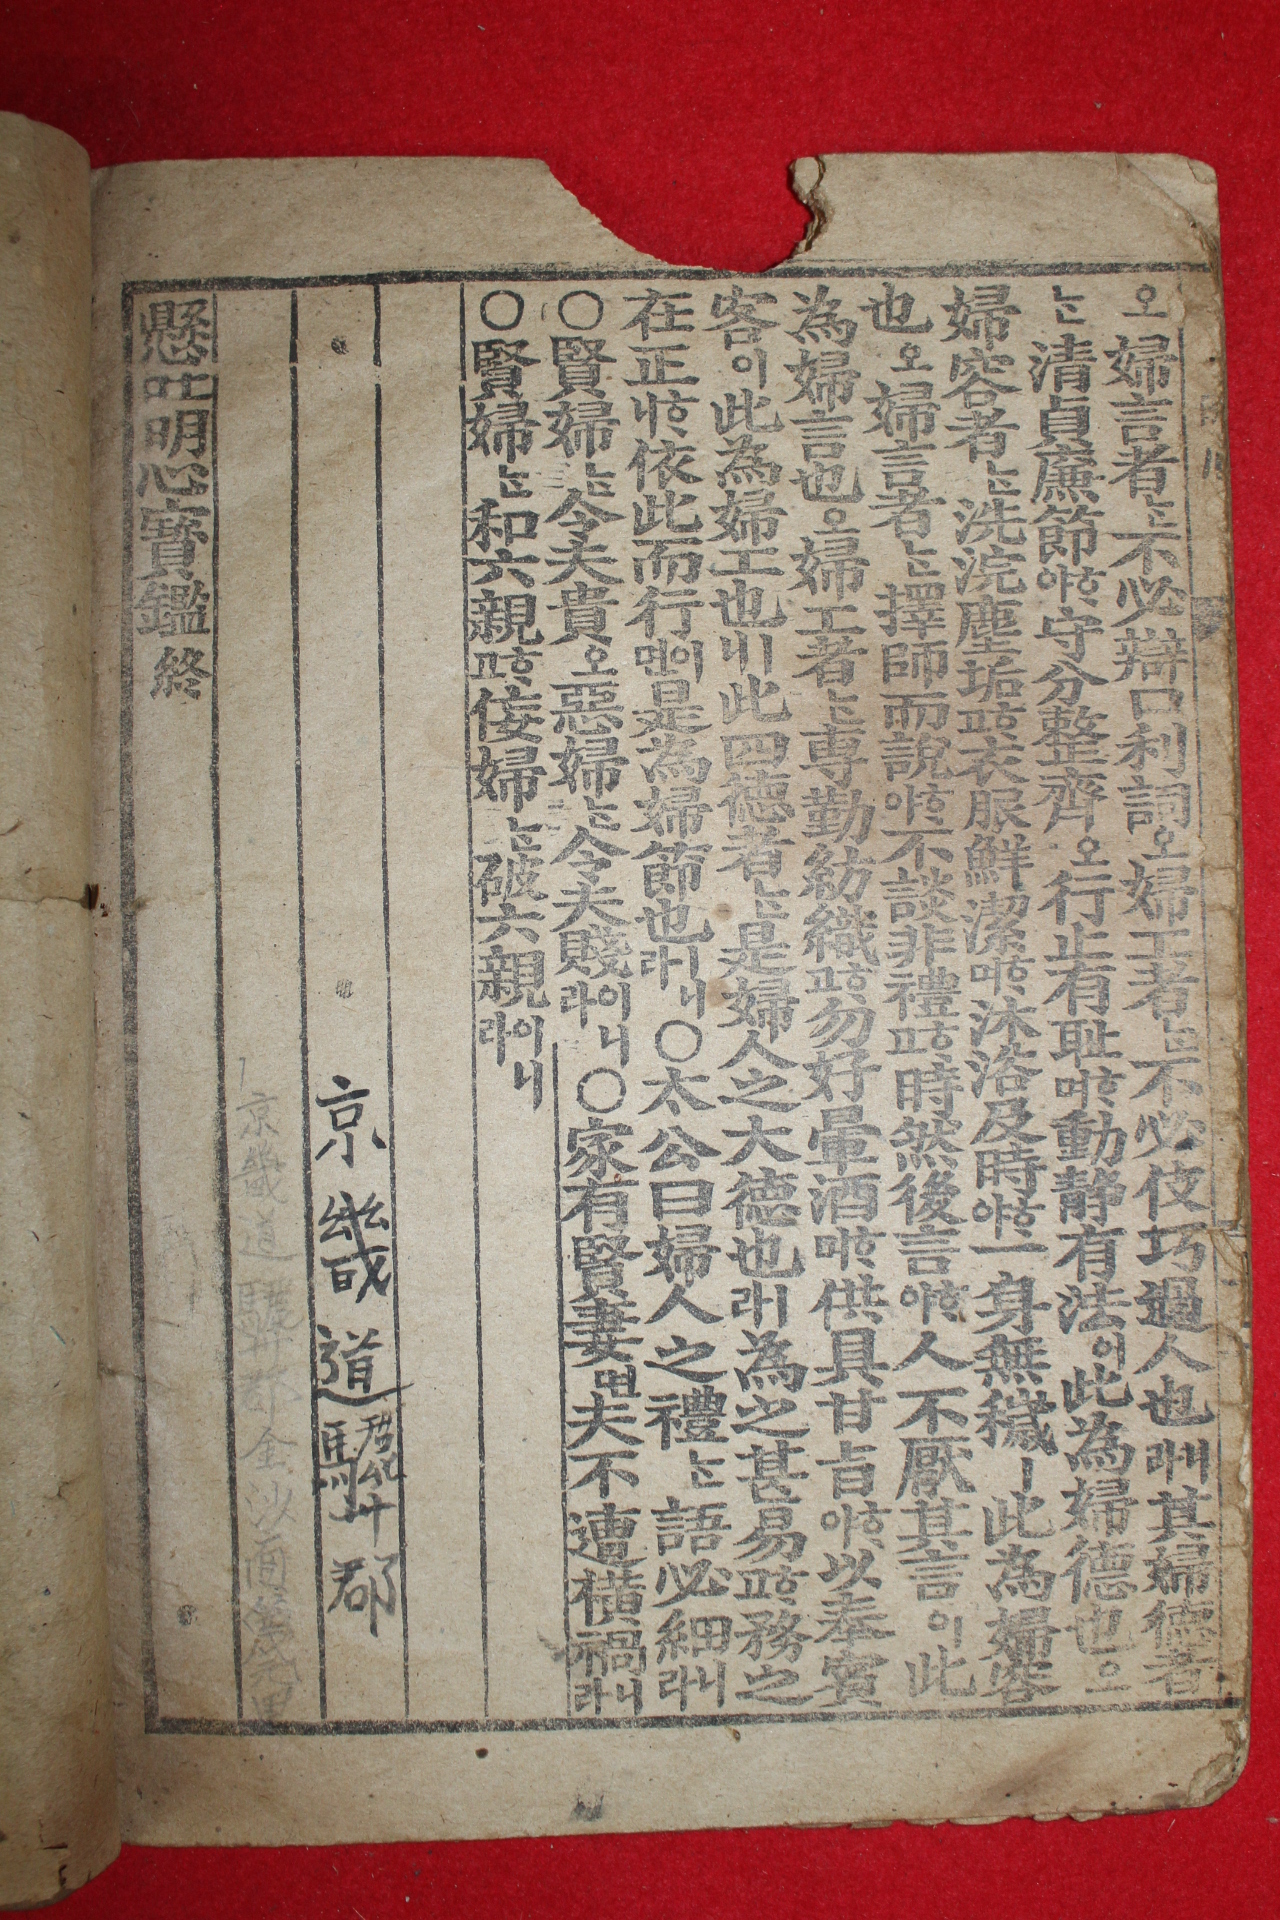 오婦言者는不必辯口利詞오婦工者는不必伎巧過人也라其婦德者
는清貞廉節하야守分整齊오行止有耻며動静有法이此為婦德也으
婦容者는洗浣塵垢하고衣服鮮潔하며沐浴及時하야一身無穢ㅣ此為婦容
也오婦言者는擇師而說하야不談非禮하고時然後言하야人不厭其言이此
為婦言也오婦工者는専勤紡織하고勿好暈酒하며供具甘旨하야以奉賓
客이此為婦工也니此四德者는是婦人之大德也라為之甚易하고務之
在正하니依此而行이면是為婦節也니라○太公曰婦人之禮는語必細니라
○賢婦는令夫貴오惡婦는令夫賤이니라○家有賢妻면夫不遭橫禍니라
○賢婦는和六親하고佞婦는破六親이니라
京畿道驪州郡
京畿道驪州郡金沙面
懸吐明心寶鑑終